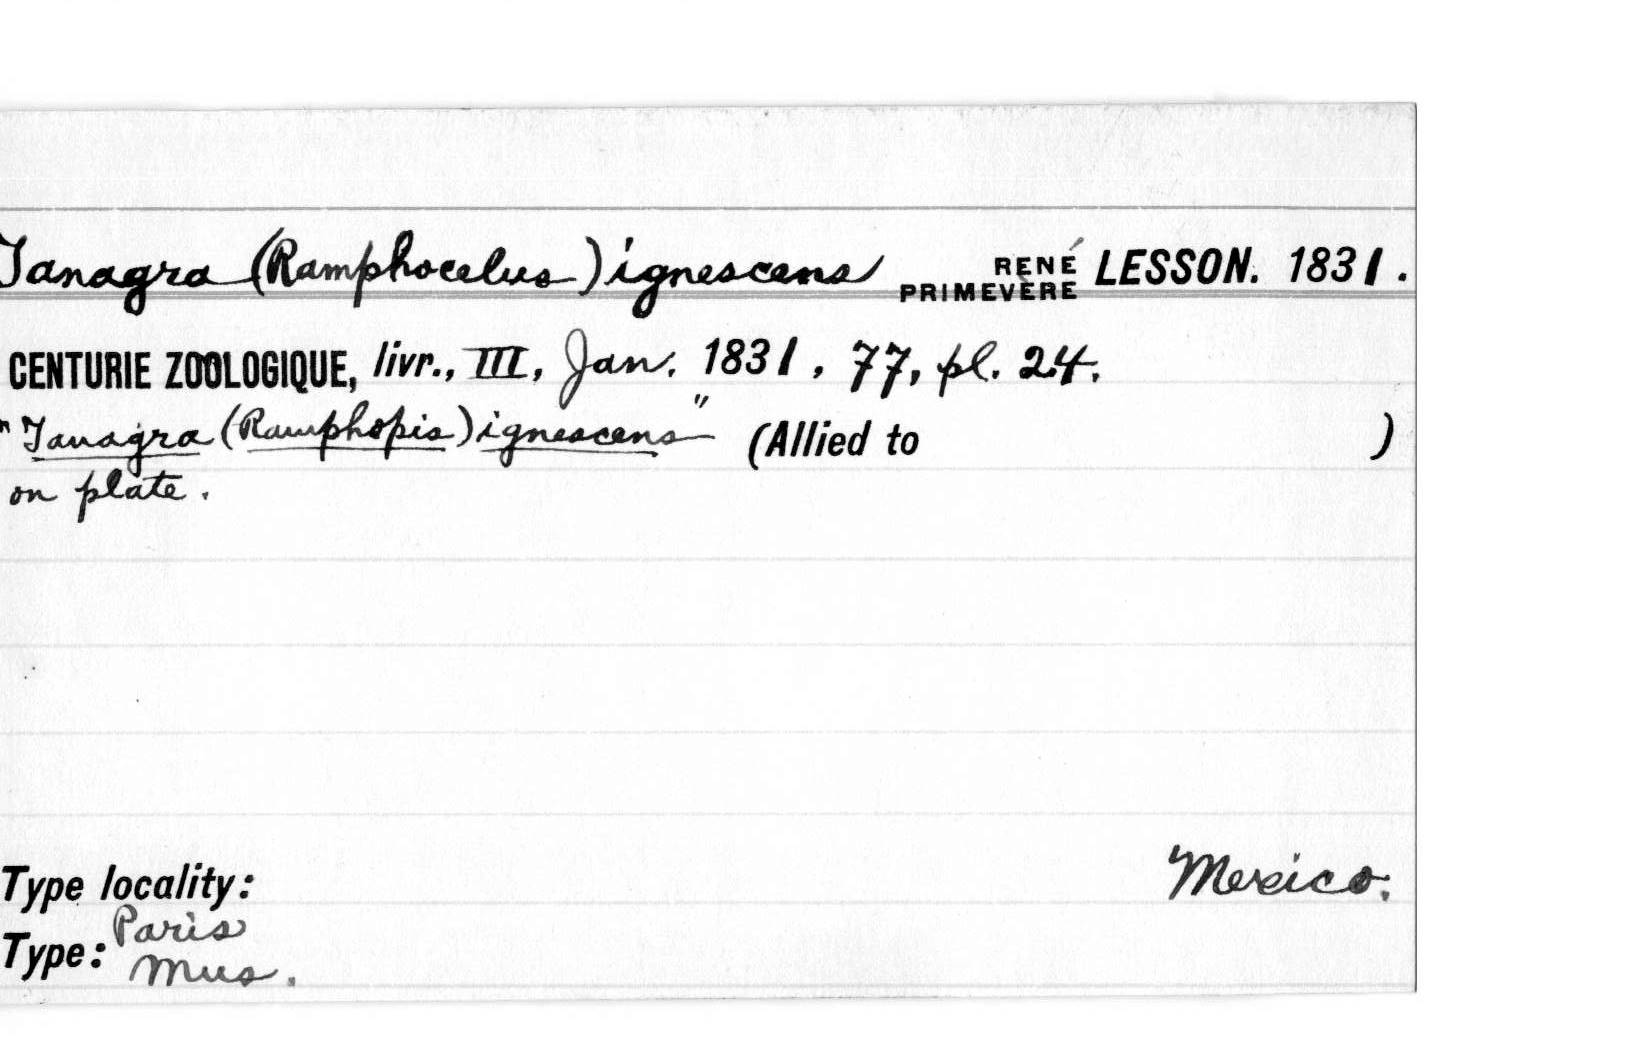 Tanagra (Ramphocelus) ignescens RENÉ PRIMEVÈRE LESSON. 1831.
CENTURIE ZOOLOGIQUE, livr., III, Jan. 1831, 77, pl. 24.
"Tanagra (Ramphopis) ignescens" (Allied to )
on plate.
Type locality: Mexico.
Type: Paris
Mus.